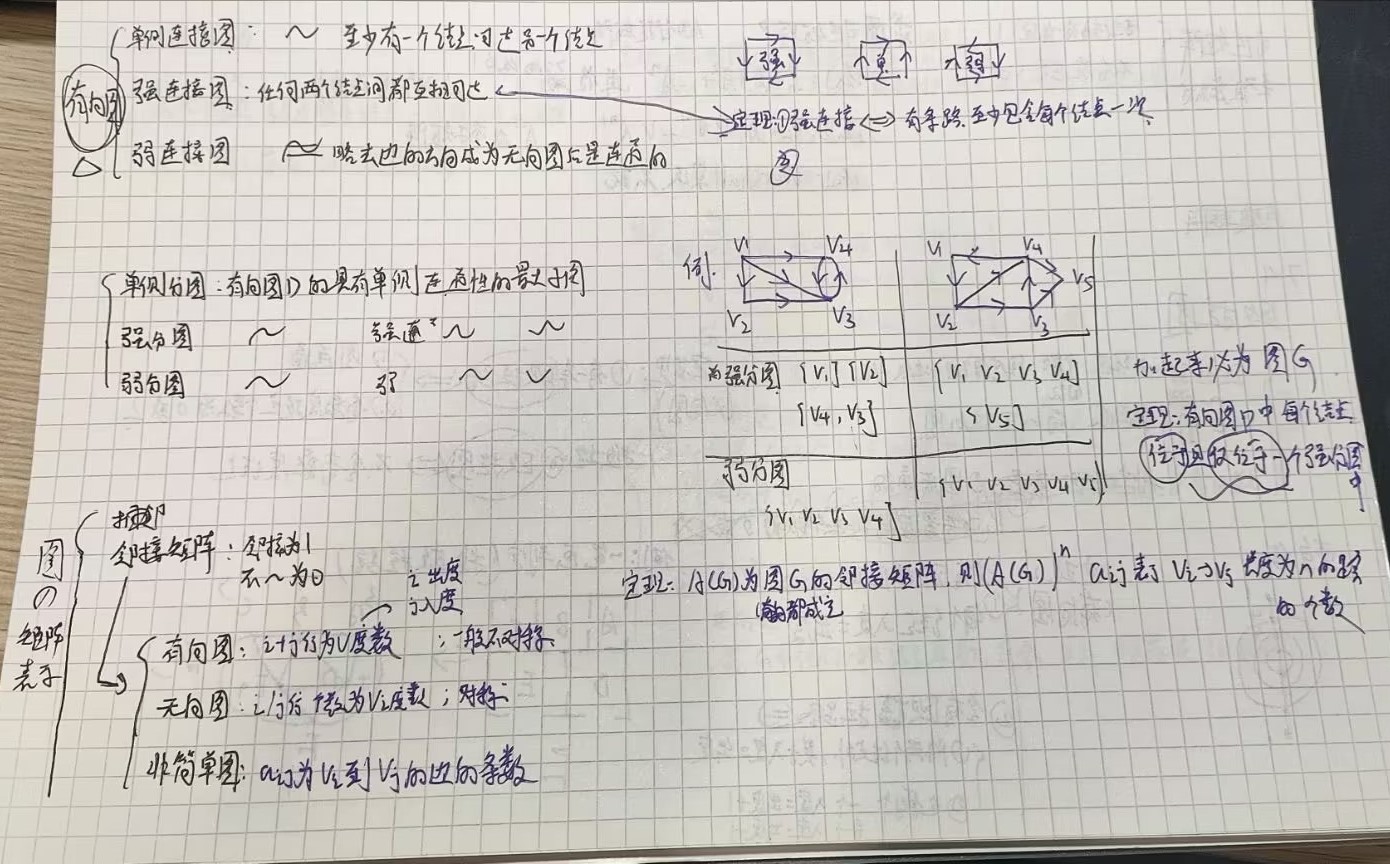 有向图
单侧连接图: ～ 至少有一个结点可达另一个结点
强连接图: 任何两个结点间都互相可达
弱连接图 略去边的方向成为无向图后是连通的
强 单 弱
定理:①强连接 <=> 有条路,至少包含每个结点一次
②
单侧分图:有向图D的具有单侧连通性的最大子图
强分图 ～ 强通 ～ ～
弱分图 ～ 弱 ～ ～
例.
V1 V4 V2 V3
V1 V4 V5 V2 V3
为强分图 {V1} {V2} {V1 V2 V3 V4}
{V4, V3} {V5}
弱分图 {V1 V2 V3 V4 V5}
{V1 V2 V3 V4}
加起来必为图G
定理:有向图D中每个结点
位于且仅位于一个强分图
中
图の矩阵表示
邻接矩阵: 邻接为1
不～为0
i出度
j入度
有向图: i+j行为V度数 ; 一般不对称
无向图: i/j行 个数为Vi度数 ; 对称
非简单图: aij为Vi至Vj的边的条数
定理: A(G)为图G的邻接矩阵,则(A(G))^n aij表示Vi→Vj长度为n的路
的个数
都成立